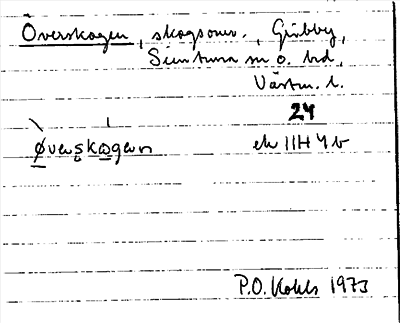 Överskogen, skogsomr., Gribby,
Simtuna sn o. hd,
Västm. l.
24
øverskogen ek 11H 4b
P.O. Kohls 1973